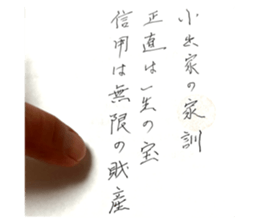 小出家の家訓
正直は一生の宝
信用は無限の財産